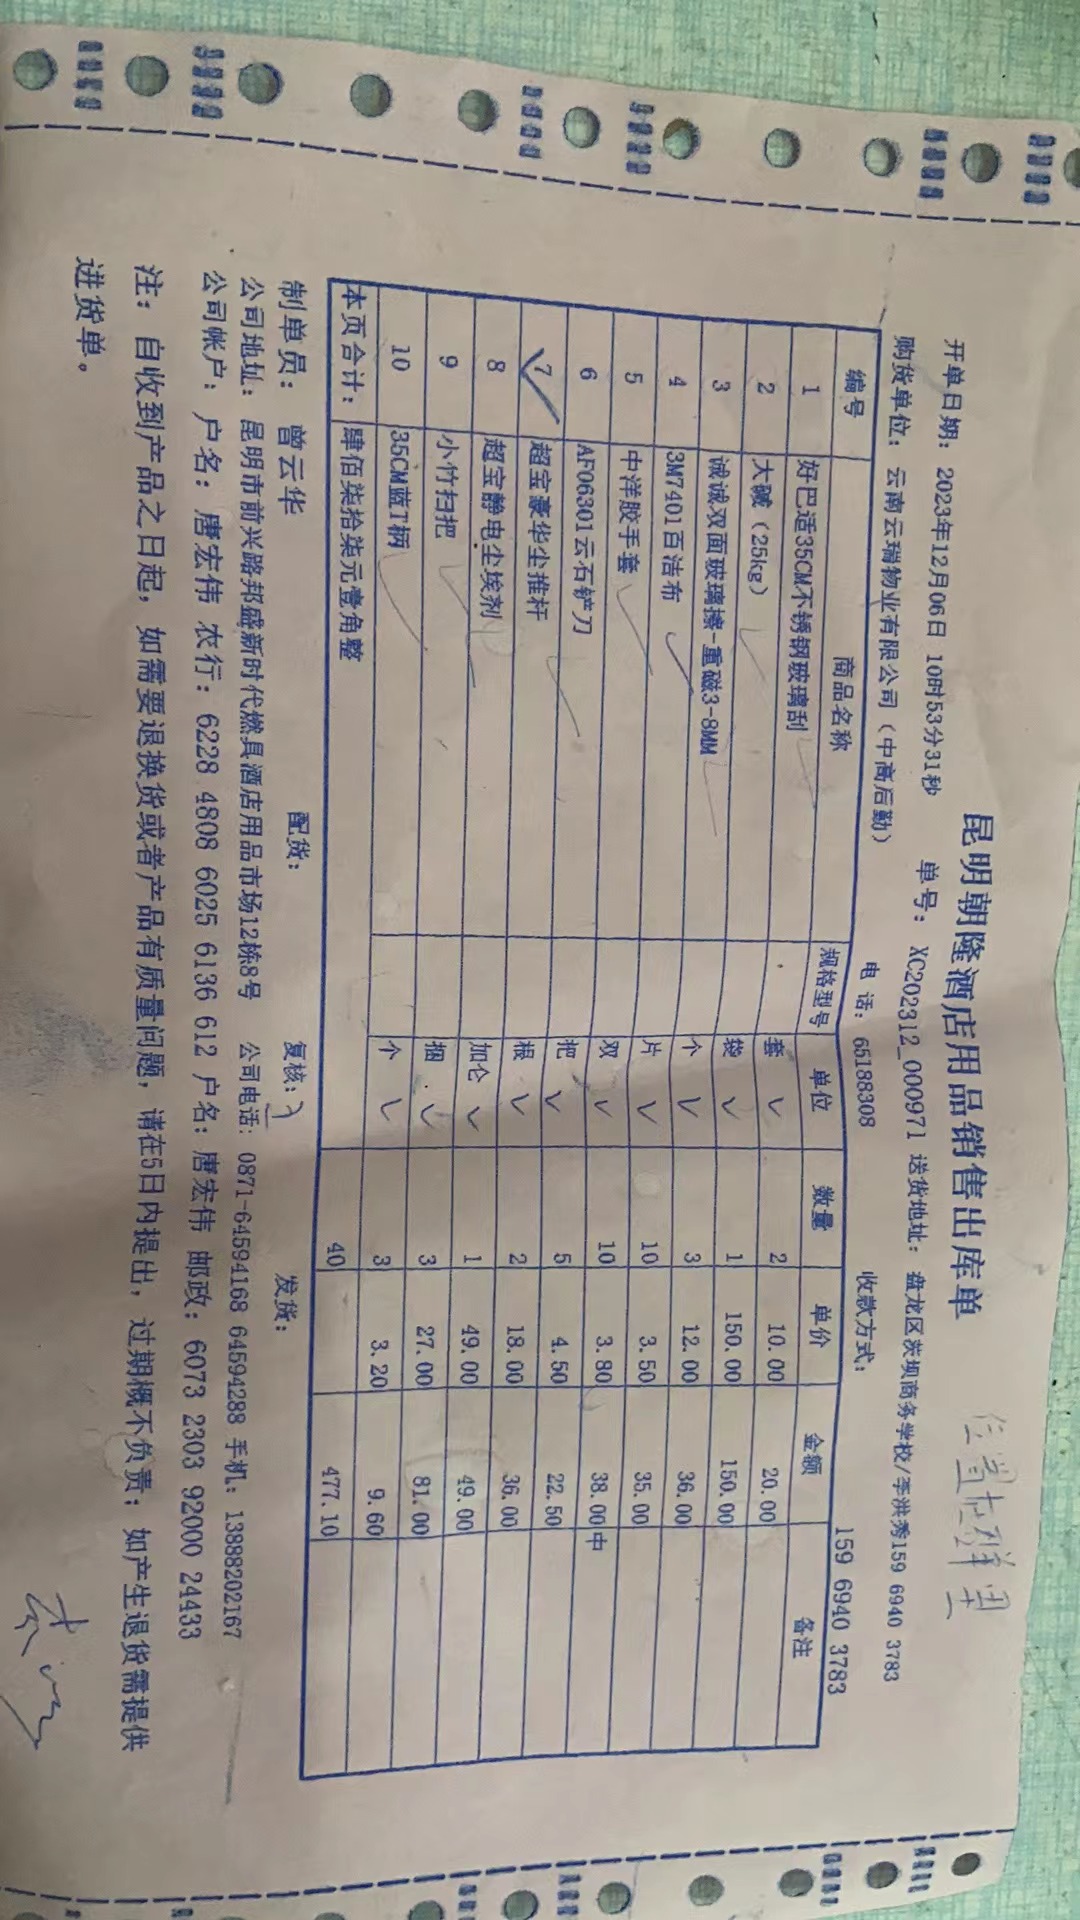 昆明朝隆酒店用品销售出库单
开单日期：2023年12月06日 10时53分31秒 单号：XC202312_000971 送货地址：盘龙区茨坝商务学校/李洪秀159 6940 3783
购货单位：云南云瑞物业有限公司（中高后勤） 电 话：65188308 收款方式： 159 6940 3783
编号 商品名称 规格型号 单位 数量 单价 金额 备注
1 好巴适35CM不锈钢玻璃刮 套 2 10.00 20.00
2 大碱（25kg） 袋 1 150.00 150.00
3 诚诚双面玻璃擦-重磁3-8MM 个 3 12.00 36.00
4 3M7401百洁布 片 10 3.50 35.00
5 中洋胶手套 双 10 3.80 38.00 中
6 AF06301云石铲刀 把 5 4.50 22.50
7 超宝豪华尘推杆 根 2 18.00 36.00
8 超宝静电尘埃剂 加仑 1 49.00 49.00
9 小竹扫把 捆 3 27.00 81.00
10 35CM蓝T柄 个 3 3.20 9.60
本页合计：肆佰柒拾柒元壹角整 40 477.10
制单员：曾云华 配货： 复核： 发货：
公司地址：昆明市前兴路邦盛新时代燃具酒店用品市场12栋8号 公司电话：0871-64594168 64594288 手机：13888202167
公司帐户：户名：唐宏伟 农行：6228 4808 6025 6136 612 户名：唐宏伟 邮政：6073 2303 92000 24433
注：自收到产品之日起，如需要退换货或者产品有质量问题，请在5日内提出，过期概不负责；如产生退货需提供
进货单。